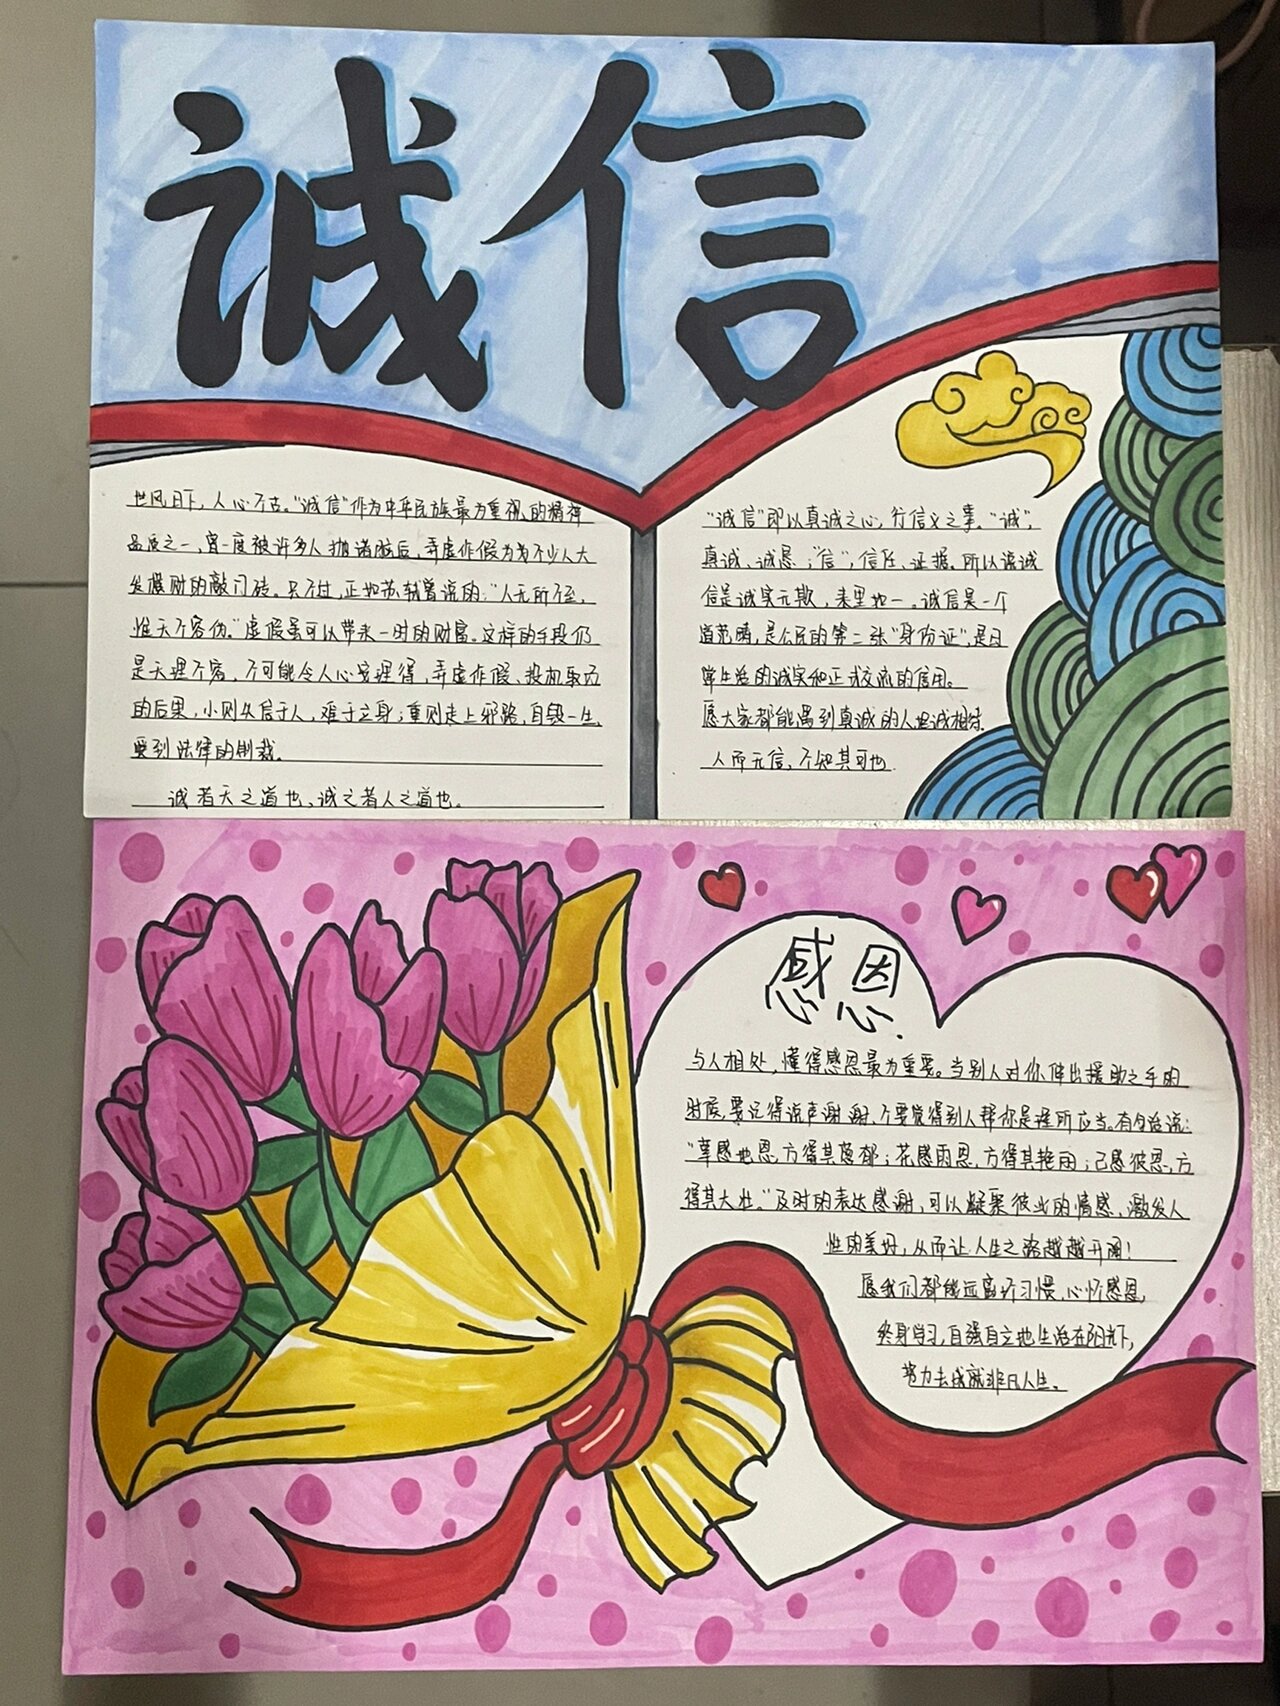 诚信
世风日下，人心不古。“诚信”作为中华民族最为重视的精神
品质之一，曾一度被许多人抛诸脑后，弄虚作假为为不少人大
发横财的敲门砖。只不过，正如苏轼曾说的：“人无所不至，
惟天不容伪。”虚假虽可以带来一时的财富。这样的手段仍
是天理不容，不可能令人心安理得，弄虚作假、投机取巧
的后果，小则失信于人，难于立身；重则走上邪路，自毁一生
受到法律的制裁。
诚者天之道也，诚之者人之道也。
“诚信”即以真诚之心，行信义之事。“诚”，
真诚、诚恳；“信”，信任、证据。所以诚
信是诚实无欺，表里如一。诚信是一个
道德范畴，是公民的第二张“身份证”，是日
常生活的诚实和正式交流的信用。
愿大家都能遇到真诚的人坦诚相待
人而无信，不知其可也
感恩
与人相处，懂得感恩最为重要。当别人对你伸出援助之手的
时候，要记得说声谢谢，不要觉得别人帮你是理所应当。有句话说：
“草感地恩，方得其葱郁；花感雨恩，方得其艳丽；己感彼恩，方
得其大壮。”及时的表达感谢，可以凝聚彼此的情感，激发人
性的美好，从而让人生之路越越开阔！
愿我们都能远离坏习惯，心怀感恩，
终身学习，自强自立地生活在阳光下，
努力去成就非凡人生。